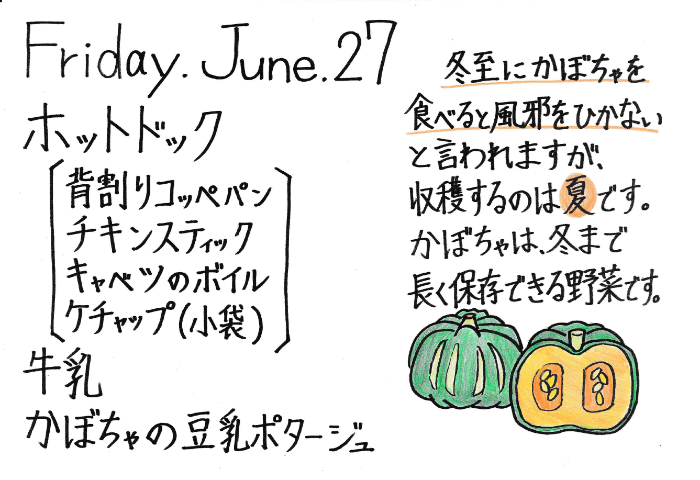 Friday. June. 27
ホットドック
背割りコッペパン
チキンスティック
キャベツのボイル
ケチャップ(小袋)
牛乳
かぼちゃの豆乳ポタージュ
冬至にかぼちゃを
食べると風邪をひかない
と言われますが、
収穫するのは夏です。
かぼちゃは、冬まで
長く保存できる野菜です。